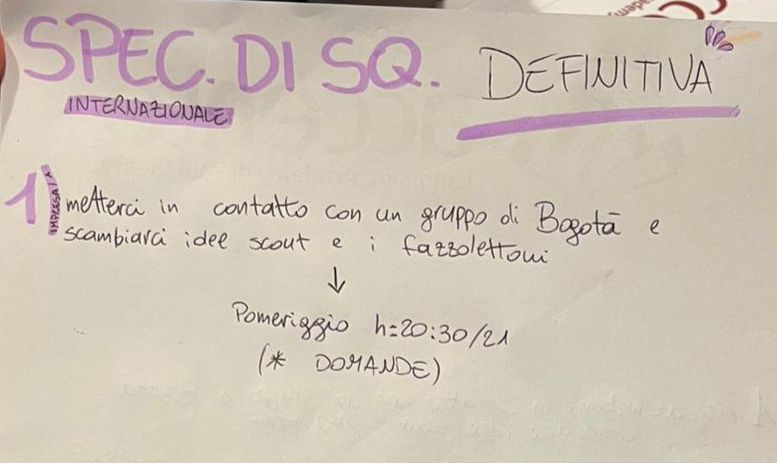 SPEC. DI SQ. DEFINITIVA
INTERNAZIONALE
1) IMPRESA 1
metterci in contatto con un gruppo di Bogotà e
scambiarci idee scout e i fazzolettoni
↓
Pomeriggio h=20:30/21
(* DOMANDE)